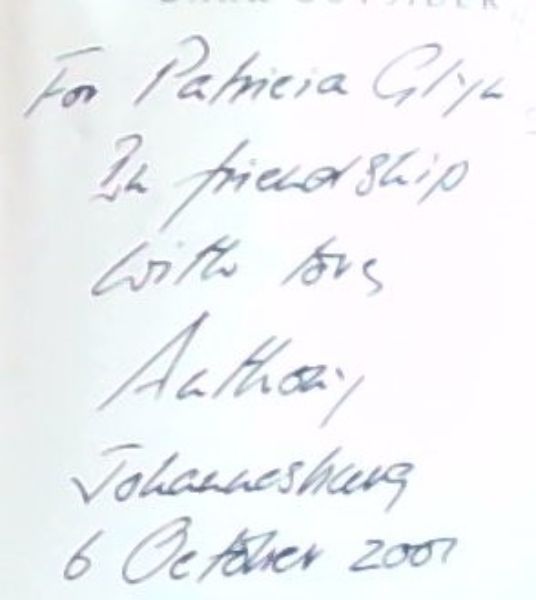 For Patricia Glyn
In friendship
with love
Anthony
Johannesburg
6 October 2001